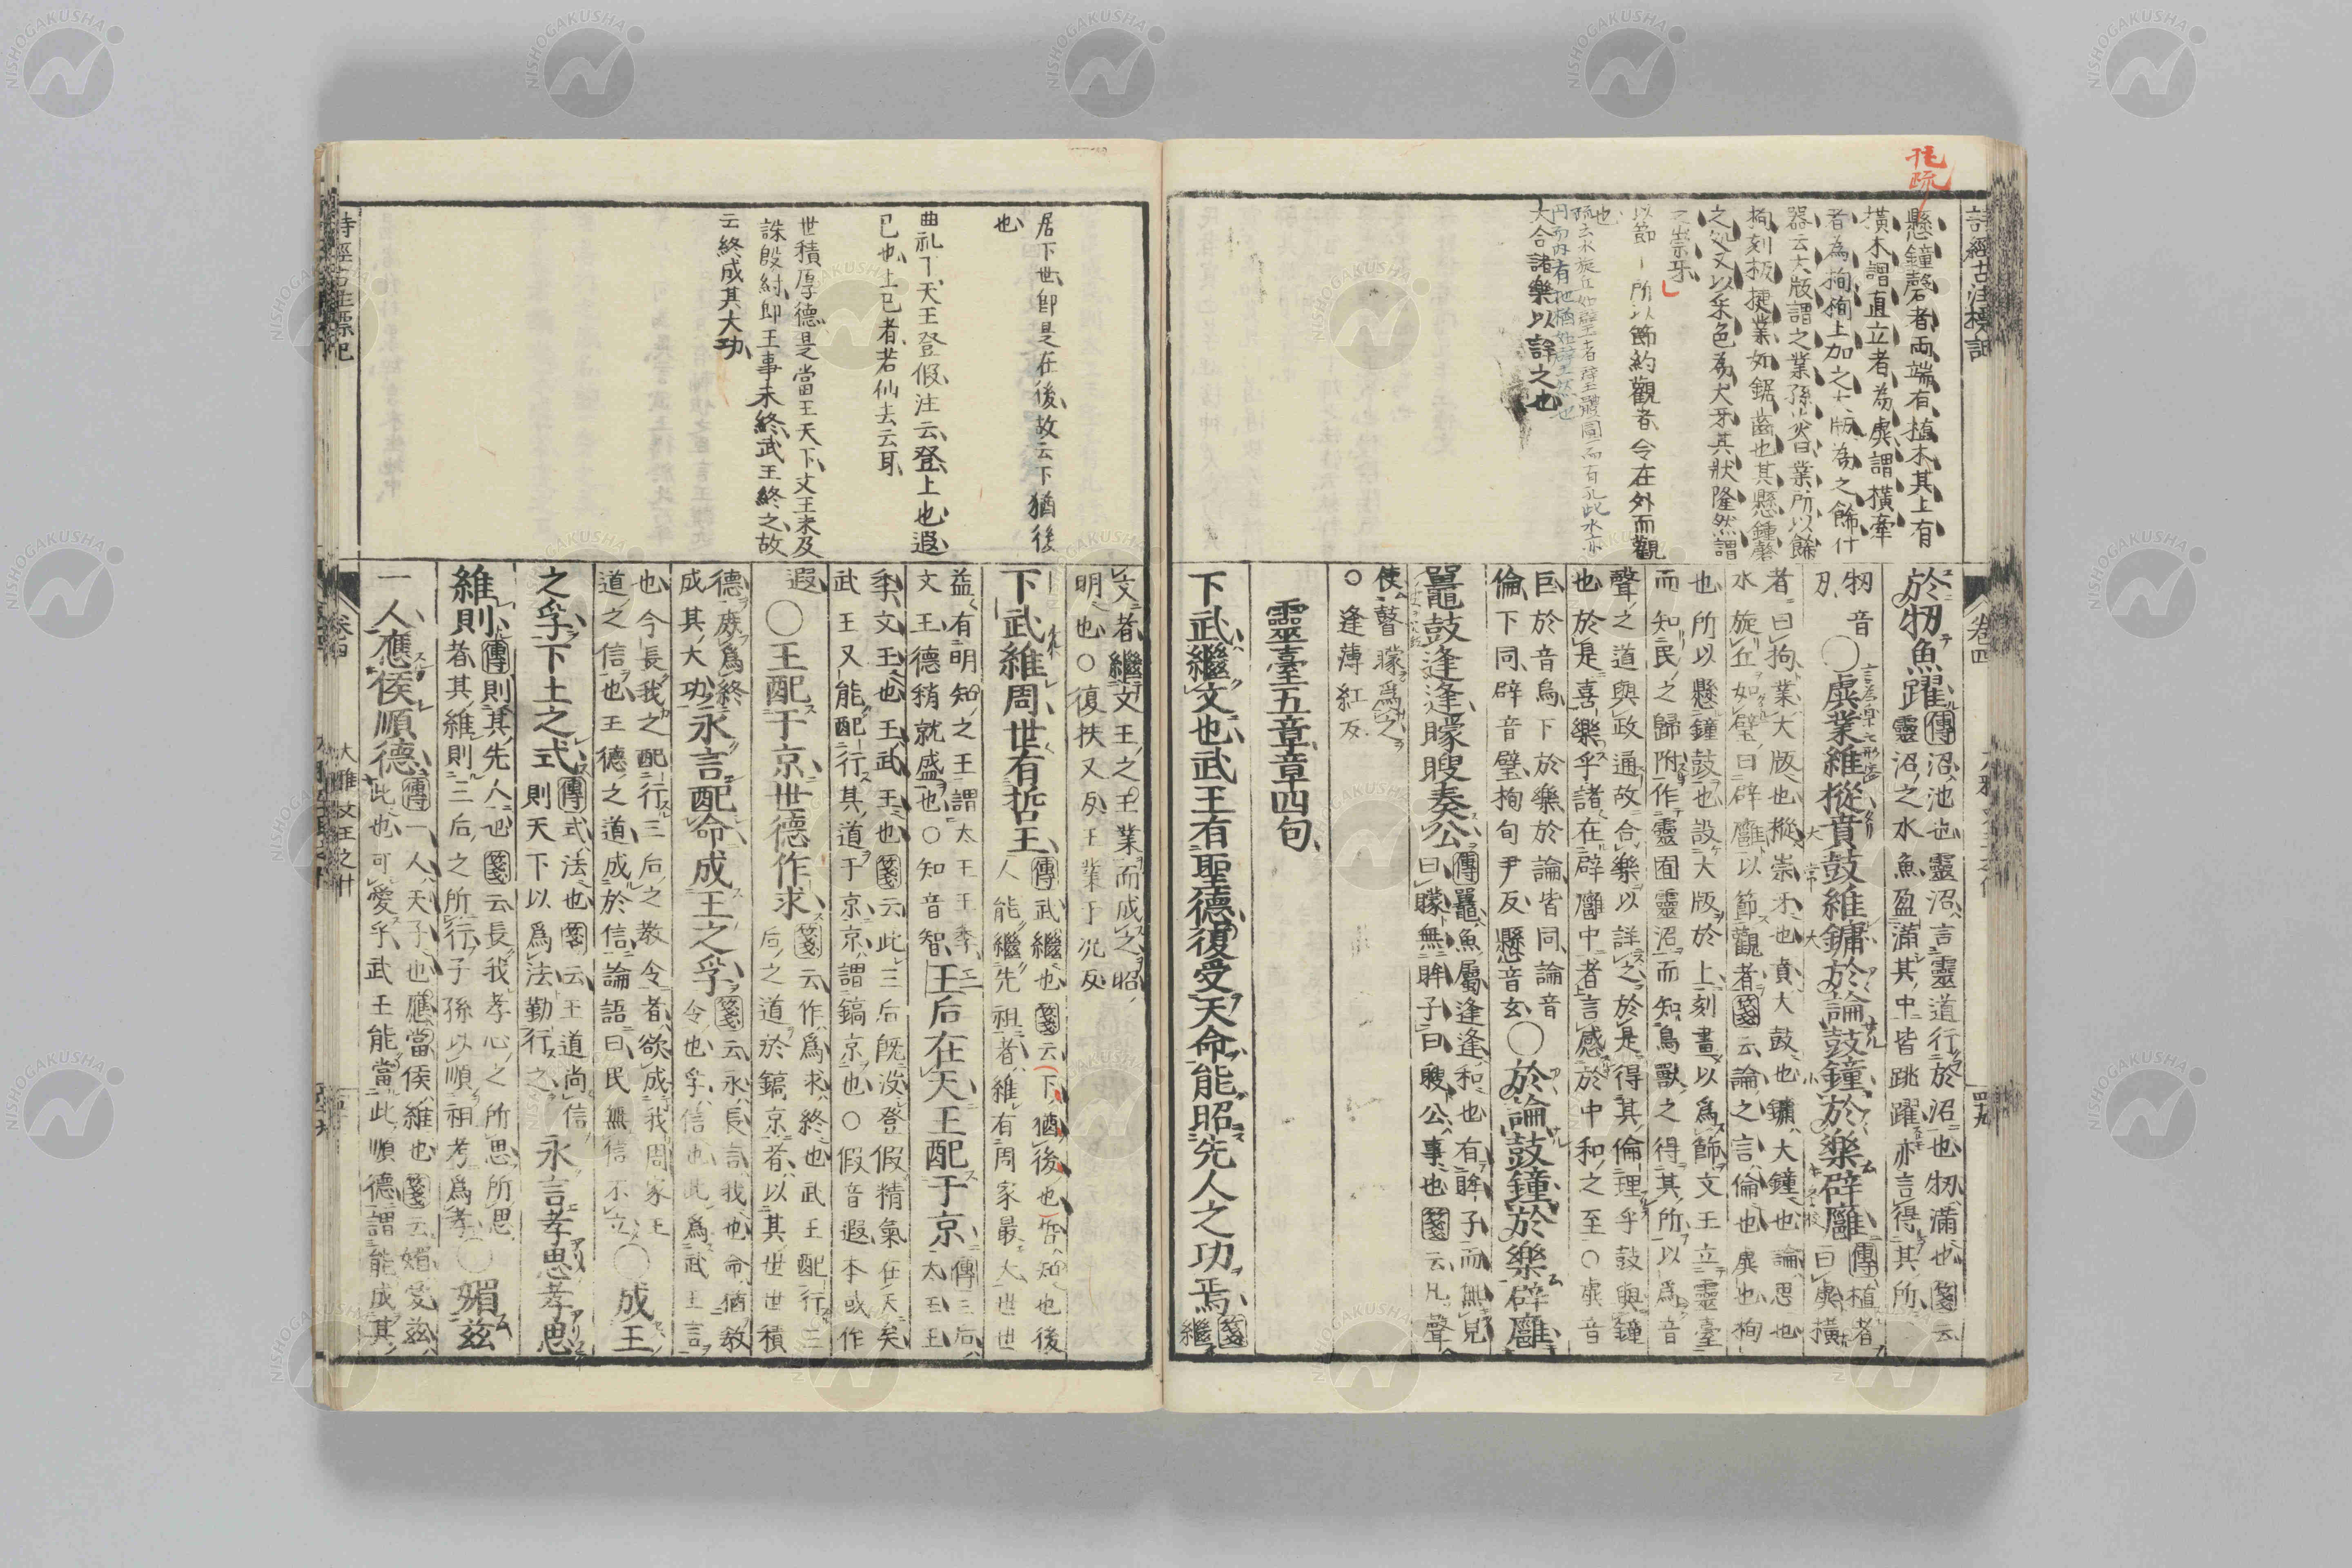 詩經古注標記
懸鐘磬者兩端有植木其上有
橫木謂直立者為虡謂橫牽
者為栒栒上加之大版為之飾
器云大版謂之業孫炎曰業所以飾
栒刻板捷業如鋸齒也其懸鍾磬
之處又以采色為大牙其狀隆然謂
之崇牙
以節所以節約觀者令在外而觀
也
疏云水旋丘如璧者璧體圓而有孔此水亦
大合諸樂以詳之也
卷四
於牣魚躍傳沼池也靈沼言靈道行於沼也牣滿也箋云
靈沼之水魚盈滿其中皆跳躍亦言得其所
牣音
刃○虡業維樅賁鼓維鏞於論鼓鐘於樂辟廱傳植者
曰虡橫
者曰栒業大版也樅崇牙也賁大鼓也鏞大鐘也論思也
水旋丘如璧曰辟廱以節觀者箋云論之言倫也虡也栒
也所以懸鐘鼓也設大版於上刻畫以爲飾文王立靈臺
而知民之歸附作靈囿靈沼而知鳥獸之得其所以爲音
聲之道與政通故合樂以詳之於是得其倫理乎鼓與鐘
也於是喜樂乎諸在辟廱中者言感於中和之至○虡音
巨於音烏下於樂於論皆同論音
倫下同辟音璧栒旬尹反懸音玄○於論鼓鐘於樂辟廱
鼉鼓逢逢矇瞍奏公傳鼉魚屬逢逢和也有眸子而無見
曰矇無眸子曰瞍公事也箋云凡聲
使瞽矇爲之
○逢薄紅反
靈臺五章章四句
下武繼文也武王有聖德復受天命能昭先人之功焉箋
繼
居下世即是在後故云下猶後
也
曲礼下天王登假注云登上也遐
已也上已者若仙去云耳
世積厚德是當王天下文王未及
誅殷紂即王事未終武王終之故
云終成其大功
文者繼文王之王業而成之昭
明也○復扶又反王業于况反
下武維周世有哲王傳武繼也箋云下猶後也哲知也後
人能繼先祖者維有周家最大世世
益有明知之王謂太王王季
文王德稍就盛也○知音智王后在天王配于京傳三后
太王王
季文王也王武王也箋云此三后既没登假精氣在天矣
武王又能配行其道于京京謂鎬京也○假音遐本或作
遐○王配于京世德作求箋云作爲求終也武王配行三
后之道於鎬京者以其世世積
德庶爲終
成其大功永言配命成王之孚箋云永長言我也命猶教
令也孚信也此爲武王言
也今長我之配行三后之教令者欲成我周家王
道之信也王德之道成於信論語曰民無信不立○成王
之孚下土之式傳式法也箋云王道尚信
則天下以爲法勤行之永言孝思孝思
維則傳則其先人也箋云長我孝心之所思所思
者其維則三后之所行子孫以順祖考爲孝○媚茲
一人應侯順德傳一人天子也應當侯維也箋云媚愛茲
此也可愛乎武王能當此順德謂能成其
卷四
大雅文王之什